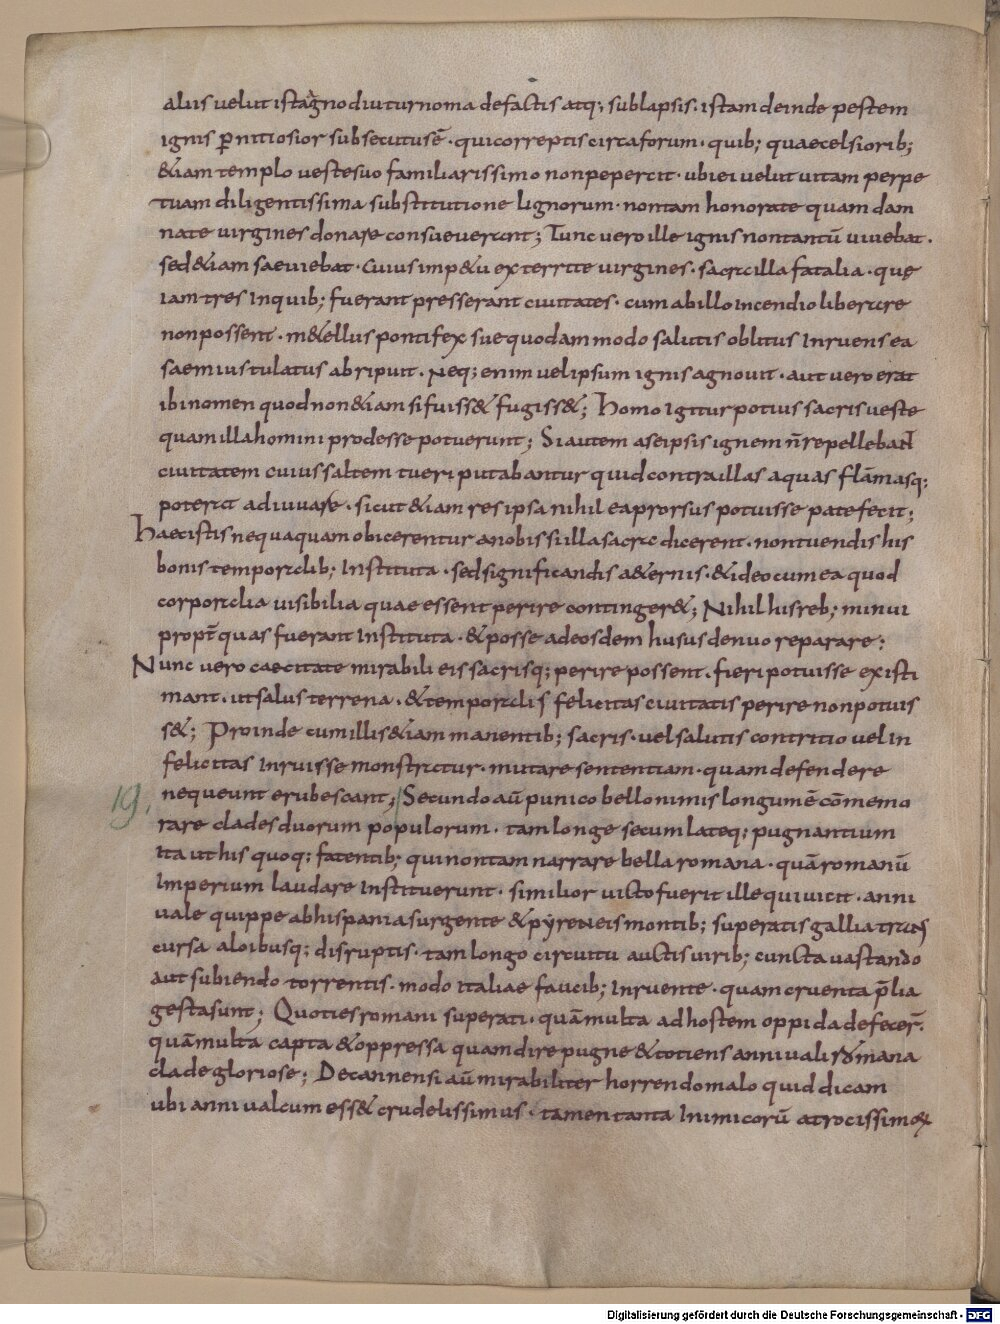 aliis uelut istagno diuturno madefactis atq; sublapsis. istam deinde pestem
ignis ꝑnitiosior subsecutus ē. qui correptis circa forum. quib; quae celsiorib;
&iam templo uestę suo familiarissimo non pepercit. ubi ei uelut uitam perpe
tuam diligentissima substitutione lignorum. non tam honoratę quam dam
natę uirgines donare consueuerant; Tunc uero ille ignis non tantū uiuebat.
sed &iam saeuiebat. Cuius imp&u exterritę uirgines. sacra illa fatalia. quę
iam tres inquib; fuerant presserant ciuitates. cum ab illo incendio liberare
non possent. m&ellus pontifex suę quodammodo salutis oblitus inruens ea
saemiustulatus abripuit. Neq; enim uel ipsum ignis agnouit. aut uero erat
ibi nomen quod non &iam si fuiss& fugiss&; Homo igitur potius sacris uestę
quam illa homini prodesse potuerunt; Si autem aseipsis ignem n̄ repellebant
ciuitatem cuius saltem tueri putabantur quid contra illas aquas flāmasq;
poterat adiuuare. sicut &iam res ipsa nihil ea prorsus potuisse patefecit;
Haec istis nequaquam obicerentur anobis si illa sacra dicerent. non tuendis his
bonis temporalib; instituta. sed significandis a&ernis. & ideo cum ea quod
corporalia uisibilia quae essent perire continger&; Nihil his reb; minui
propt̄ quas fuerant instituta. & posse adeosdem husus denuo reparare;
Nunc uero caecitate mirabili eis sacrisq; perire possent. fieri potuisse existi
mant. ut salus terrena. & temporalis felicitas ciuitatis perire non potuis
s&; Proinde cum illis &iam manentib; sacris. uel salutis contritio uel in
felicitas inruisse monstratur. mutare sententiam. quam defendere
19. nequeunt erubescant; Secundo aū punico bello nimis longum ē cōmemo
rare clades duorum populorum. tam longe secum lateq; pugnantium
ita ut his quoq; fatentib; qui non tam narrare bella romana. quā romanū
imperium laudare instituerunt. similior uicto fuerit ille qui uicit. anni
uale quippe ab hispania surgente & pyreneis montib; superatis gallia trans
cursa aloibusq; disruptis. tam longo circuitu auctis uirib; cuncta uastando
aut subiendo torrentis. modo italiae faucib; inruente. quam cruenta p̄lia
gesta sunt; Quoties romani superati. quā multa ad hostem oppida defecer̄.
quā multa capta & oppressa quam dirę pugnę & totiens anniuali romana
clade gloriosę; De cannensi aū mirabiliter horrendo malo quid dicam
ubi anniual cum ess& crudelissimus. tamen tanta inimicorū atrocissimo&
Digitalisierung gefördert durch die Deutsche Forschungsgemeinschaft - DFG